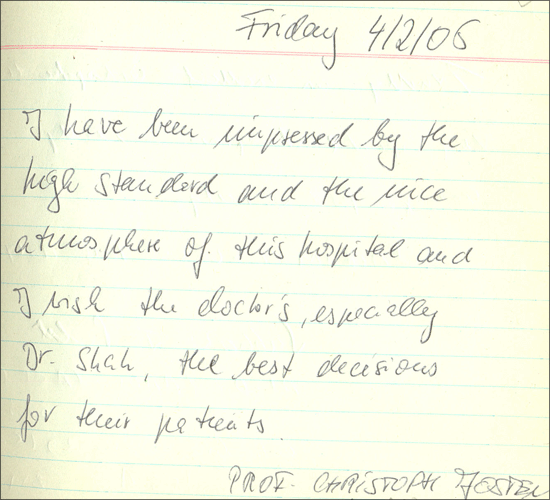 Friday 4/2/06
I have been impressed by the
high standard and the nice
atmosphere of this hospital and
I wish the doctor's, especially
Dr. Shah, the best decisions
for their patients.
PROF. CHRISTOPH JOSTEN